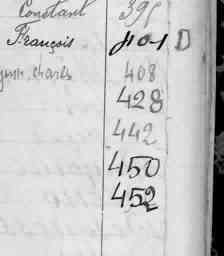 Constant 395
François 401 D
Charles 408
428
442
450
452